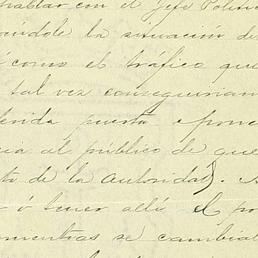 hablar con el Jefe Politic
ándole la situacion de
como el tráfico que
tal vez conseguiriam
erida puerta
al público de que
de la autoridad).
ó tener allí el po
mientras se cambia